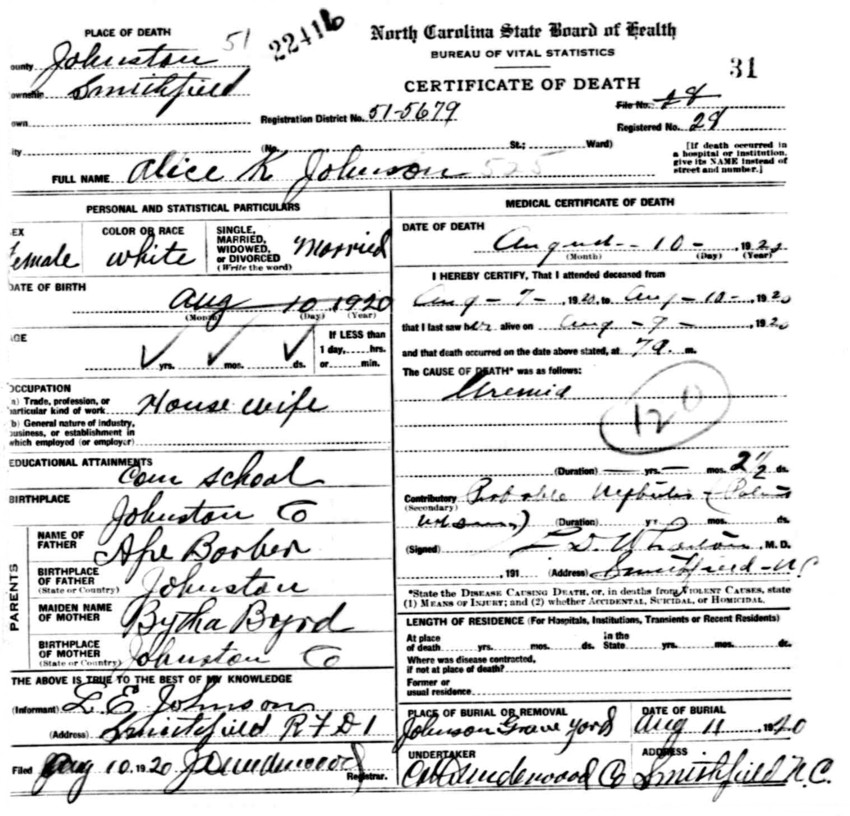 PLACE OF DEATH
51
22416
North Carolina State Board of Health
BUREAU OF VITAL STATISTICS
CERTIFICATE OF DEATH
31
ounty Johnston
ownship Smithfield
own
Registration District No. 51-5679
File No. 28
Registered No. 28
ity (No. St.; Ward)
[If death occurred in
a hospital or institution,
give its NAME instead of
street and number.]
FULL NAME Alice K Johnson 525
PERSONAL AND STATISTICAL PARTICULARS
EX
Female
COLOR OR RACE
White
SINGLE,
MARRIED,
WIDOWED,
or DIVORCED
(Write the word)
Married
DATE OF BIRTH
Aug 10 1920
(Month) (Day) (Year)
GE
yrs. mos. ds.
If LESS than
1 day, hrs.
or min.
OCCUPATION
a) Trade, profession, or
particular kind of work House wife
b) General nature of industry,
business, or establishment in
which employed (or employer)
EDUCATIONAL ATTAINMENTS
Com school
BIRTHPLACE
Johnston Co
PARENTS
NAME OF
FATHER
Barber
BIRTHPLACE
OF FATHER
(State or Country)
Johnston
MAIDEN NAME
OF MOTHER
Bytha Byrd
BIRTHPLACE
OF MOTHER
(State or Country)
Johnston Co
THE ABOVE IS TRUE TO THE BEST OF MY KNOWLEDGE
(Informant) L. E. Johnson
(Address) Smithfield R F D 1
Filed Aug 10, 1920 J D Underwood
Registrar.
MEDICAL CERTIFICATE OF DEATH
DATE OF DEATH
August 10 - , 192
(Month) (Day) (Year)
I HEREBY CERTIFY, That I attended deceased from
Aug - 7 - 1920, to Aug - 10 - , 1920
that I last saw her alive on Aug - 9 - , 1920
and that death occurred on the date above stated, at 7 a. m.
The CAUSE OF DEATH* was as follows:
Uremia
120
(Duration) — yrs. — mos. 2 1/2 ds.
Contributory Probable Nephritis
(Secondary)
(Duration) yrs. mos. ds.
(Signed) , M. D.
, 191 (Address) Smithfield - N.C
*State the DISEASE CAUSING DEATH, or, in deaths from VIOLENT CAUSES, state
(1) MEANS OF INJURY; and (2) whether ACCIDENTAL, SUICIDAL, or HOMICIDAL.
LENGTH OF RESIDENCE (For Hospitals, Institutions, Transients or Recent Residents)
At place
of death yrs. mos. ds.
In the
State yrs. mos. ds.
Where was disease contracted,
if not at place of death?
Former or
usual residence
PLACE OF BURIAL OR REMOVAL
Johnson Grave yard
DATE OF BURIAL
Aug 11 1920
UNDERTAKER
Underwood Co
ADDRESS
Smithfield N.C.